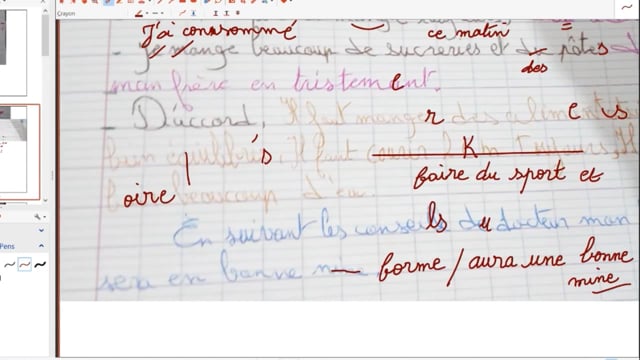 Crayon
J'ai consommé ce matin
- Je mange beaucoup de sucreries et de pâtes
des
mon frère en tristement.
- D'accord, Il faut manger des aliments
bien équilibrés, Il faut courir Km
faire du sport et
boire beaucoup d'eau.
En suivant les conseils du docteur mon
sera en bonne forme / aura une bonne
mine
Pens